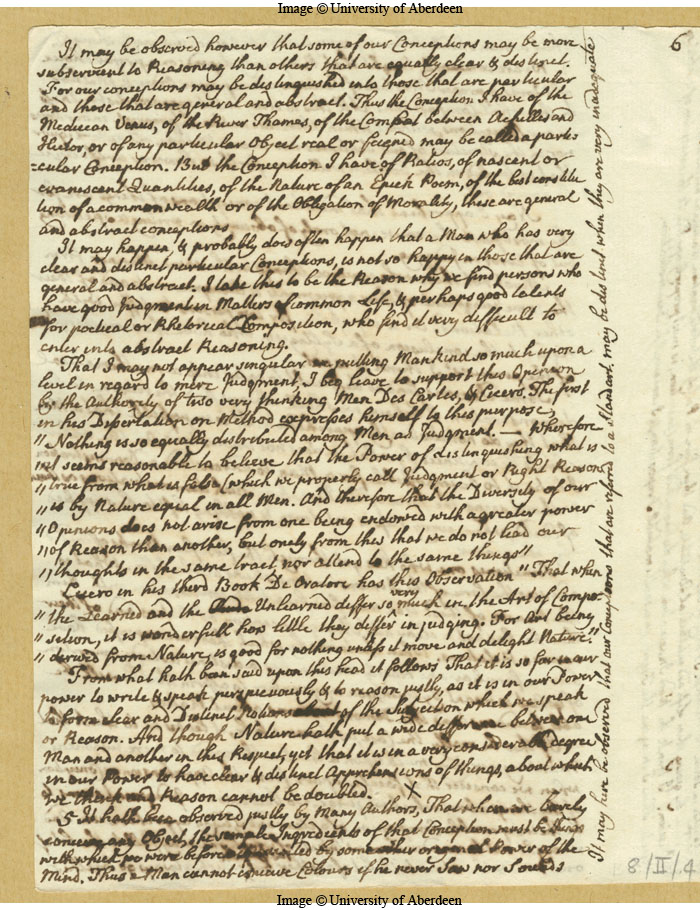 Image © University of Aberdeen
6
It may be observed however that some of our Conceptions may be more
subservient to Reasoning than others that are equally clear & distinct.
For our conceptions may be distinguished into those that are particular
and those that are general and abstract. Thus the Conception I have of the
Medicean Venus, of the River Thames, of the Combat between Achilles and
Hector, or of any particular Object real or feigned may be called a parti=
=cular Conception. But the Conception I have of Ratios, of nascent or
evanescent Quantities, of the Nature of an Epick Poem, of the best constitu
tion of a common wealth or of the Obligation of Morality, these are general
and abstract conceptions
It may happen, & probably does often happen that a Man who has very
clear and distinct particular Conceptions, is not so happy in those that are
general and abstract. I take this to be the Reason why we find persons who
have good Judgment in Matters of Common Life, & perhaps good talents
for poetical or Rhetorical Composition, who find it very difficult to
enter into abstract Reasoning.
That I may not appear singular in putting Mankind so much upon a
level in regard to mere Judgment, I beg leave to support this Opinion
by the Authority of two very thinking Men Des Cartes, & Cicero. The first
in his Dissertation on Method expresses himself to this purpose,
" Nothing is so equally distributed among Men as Judgment. — Wherefore
" it seems reasonable to believe that the Power of distinguishing what is
" true from what is false (which we properly call Judgment or Right Reason)
" is by Nature equal in all Men. And therefore that the Diversity of our
" Opinions does not arise from one being endowed with a greater power
" of Reason than another, but onely from this that we do not lead our
" thoughts in the same tract nor attend to the same things"
Cicero in his third Book De Oratore has this Observation " That when
" the Learned and the Unlearned differ so very much in the Art of Compo-
" sition, it is wonderfull how little they differ in judging. For Art being
" derived from Nature, is good for nothing unless it move and delight Nature."
From what hath been said upon this head it follows That it is so far in our
power to write & speak perspicuously & to reason justly, as it is in our Power
to form clear and Distinct Notions of the Subject on which we speak
or Reason. And though Nature hath put a wide difference between one
Man and another in this Respect, yet that it is in a very considerable degree
in our Power to have clear & distinct Apprehensions of things, about which
we think and Reason cannot be doubted. X
5 It hath been observed justly by Many Authors, That when we barely
conceive any Object, the simple Ingredients of that Conception must be things
with which we were before acquainted by some other original Power of the
Mind. Thus a Man cannot conceive Colours if he never Saw nor Sounds
It may here be observed that our Conceptions that are referred to a Standard, may be distinct when they are very inadequate
8/II/4
Image © University of Aberdeen